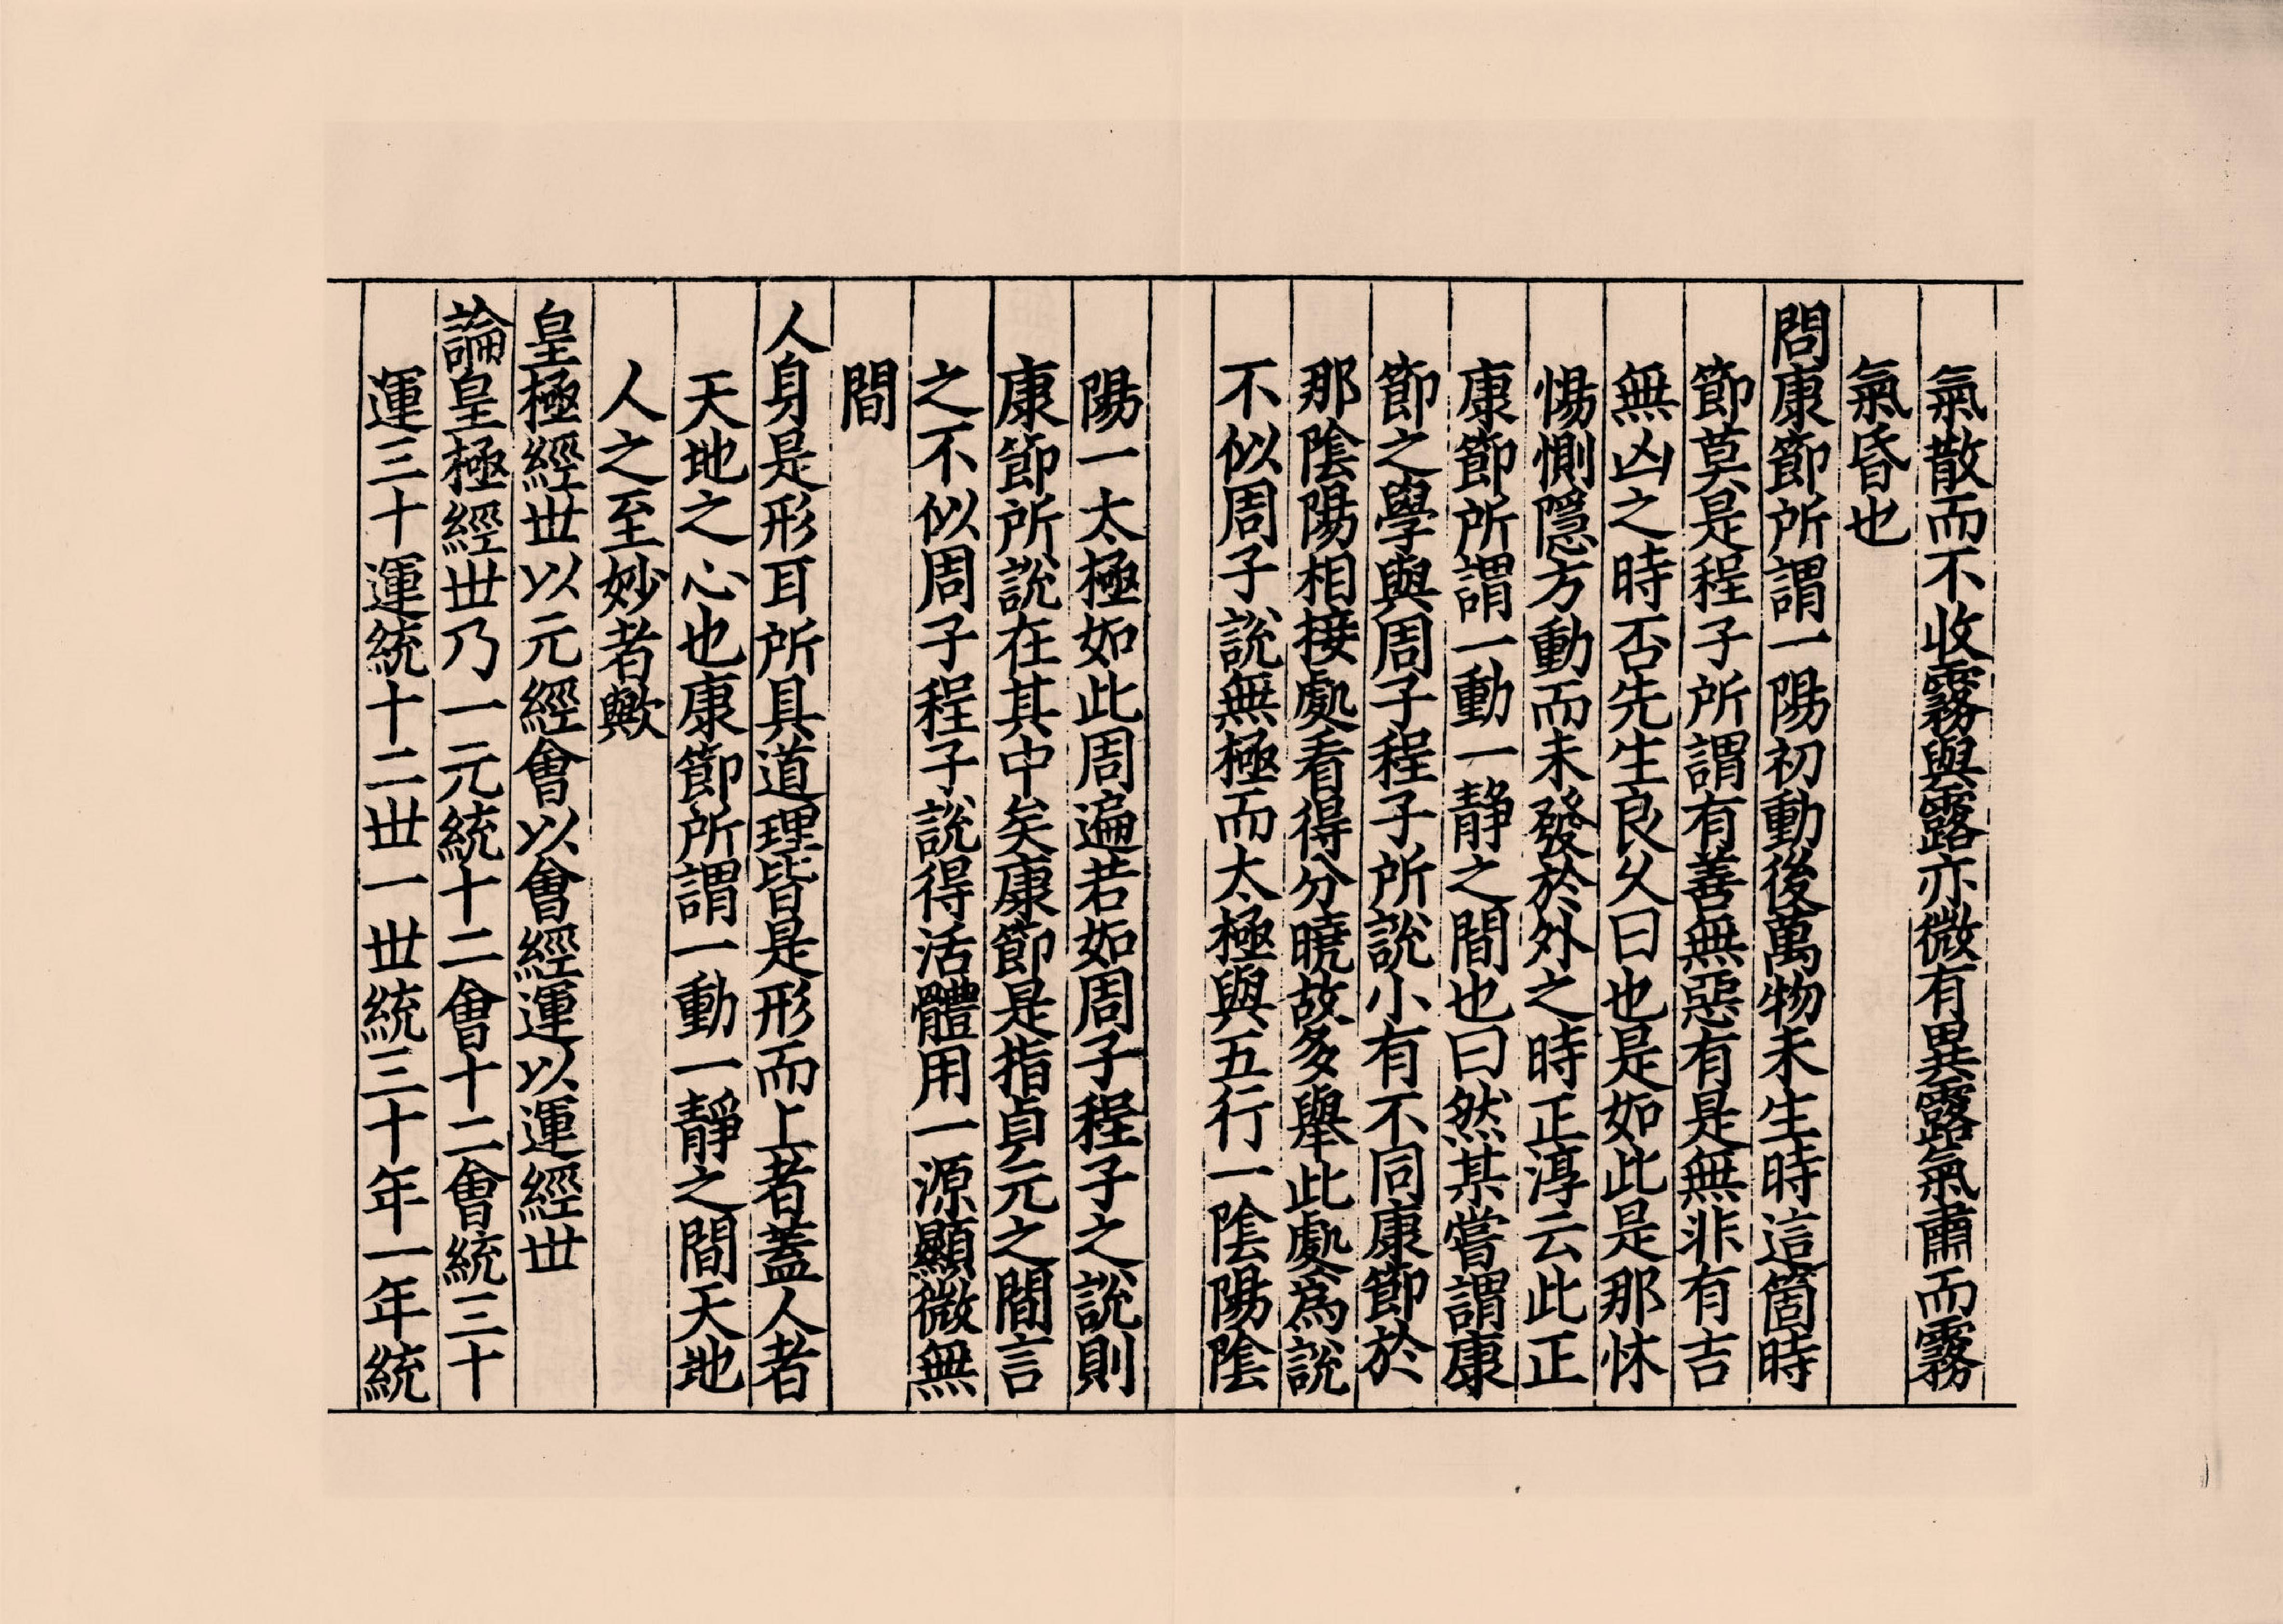 氣散而不收霧與露亦微有異露氣肅而霧
氣昏也
問康節所謂一陽初動後萬物未生時這箇時
節莫是程子所謂有善無惡有是無非有吉
無凶之時否先生良久曰也是如此是那怵
惕惻隱方動而未發於外之時正淳云此正
康節所謂一動一靜之間也曰然某嘗謂康
節之學與周子程子所說小有不同康節於
那陰陽相接處看得分曉故多舉此處爲說
不似周子說無極而太極與五行一陰陽陰
陽一太極如此周遍若如周子程子之說則
康節所說在其中矣康節是指貞元之間言
之不似周子程子說得活體用一源顯微無
間
人身是形耳所具道理皆是形而上者蓋人者
天地之心也康節所謂一動一靜之間天地
人之至妙者歟
皇極經丗以元經會以會經運以運經丗
論皇極經丗乃一元統十二會十二會統三十
運三十運統十二丗一丗統三十年一年統